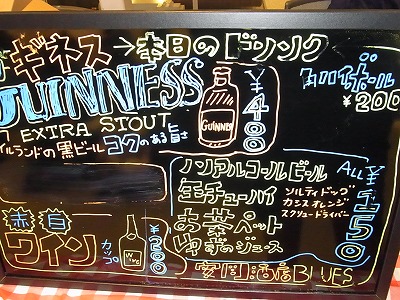 ギネス→本日のドリンク
GUINNESS
EXTRA STOUT
アイルランドの黒ビール コクのある旨さ
GUINNESS
¥480
ハイボール
¥200
ノンアルコールビール
缶チューハイ
ソルティドッグ
カシスオレンジ
スクリュードライバー
お茶ペット
ゆずのジュース
ALL ¥150
赤白
ワイン
カップ
Wine
¥200
BLUES